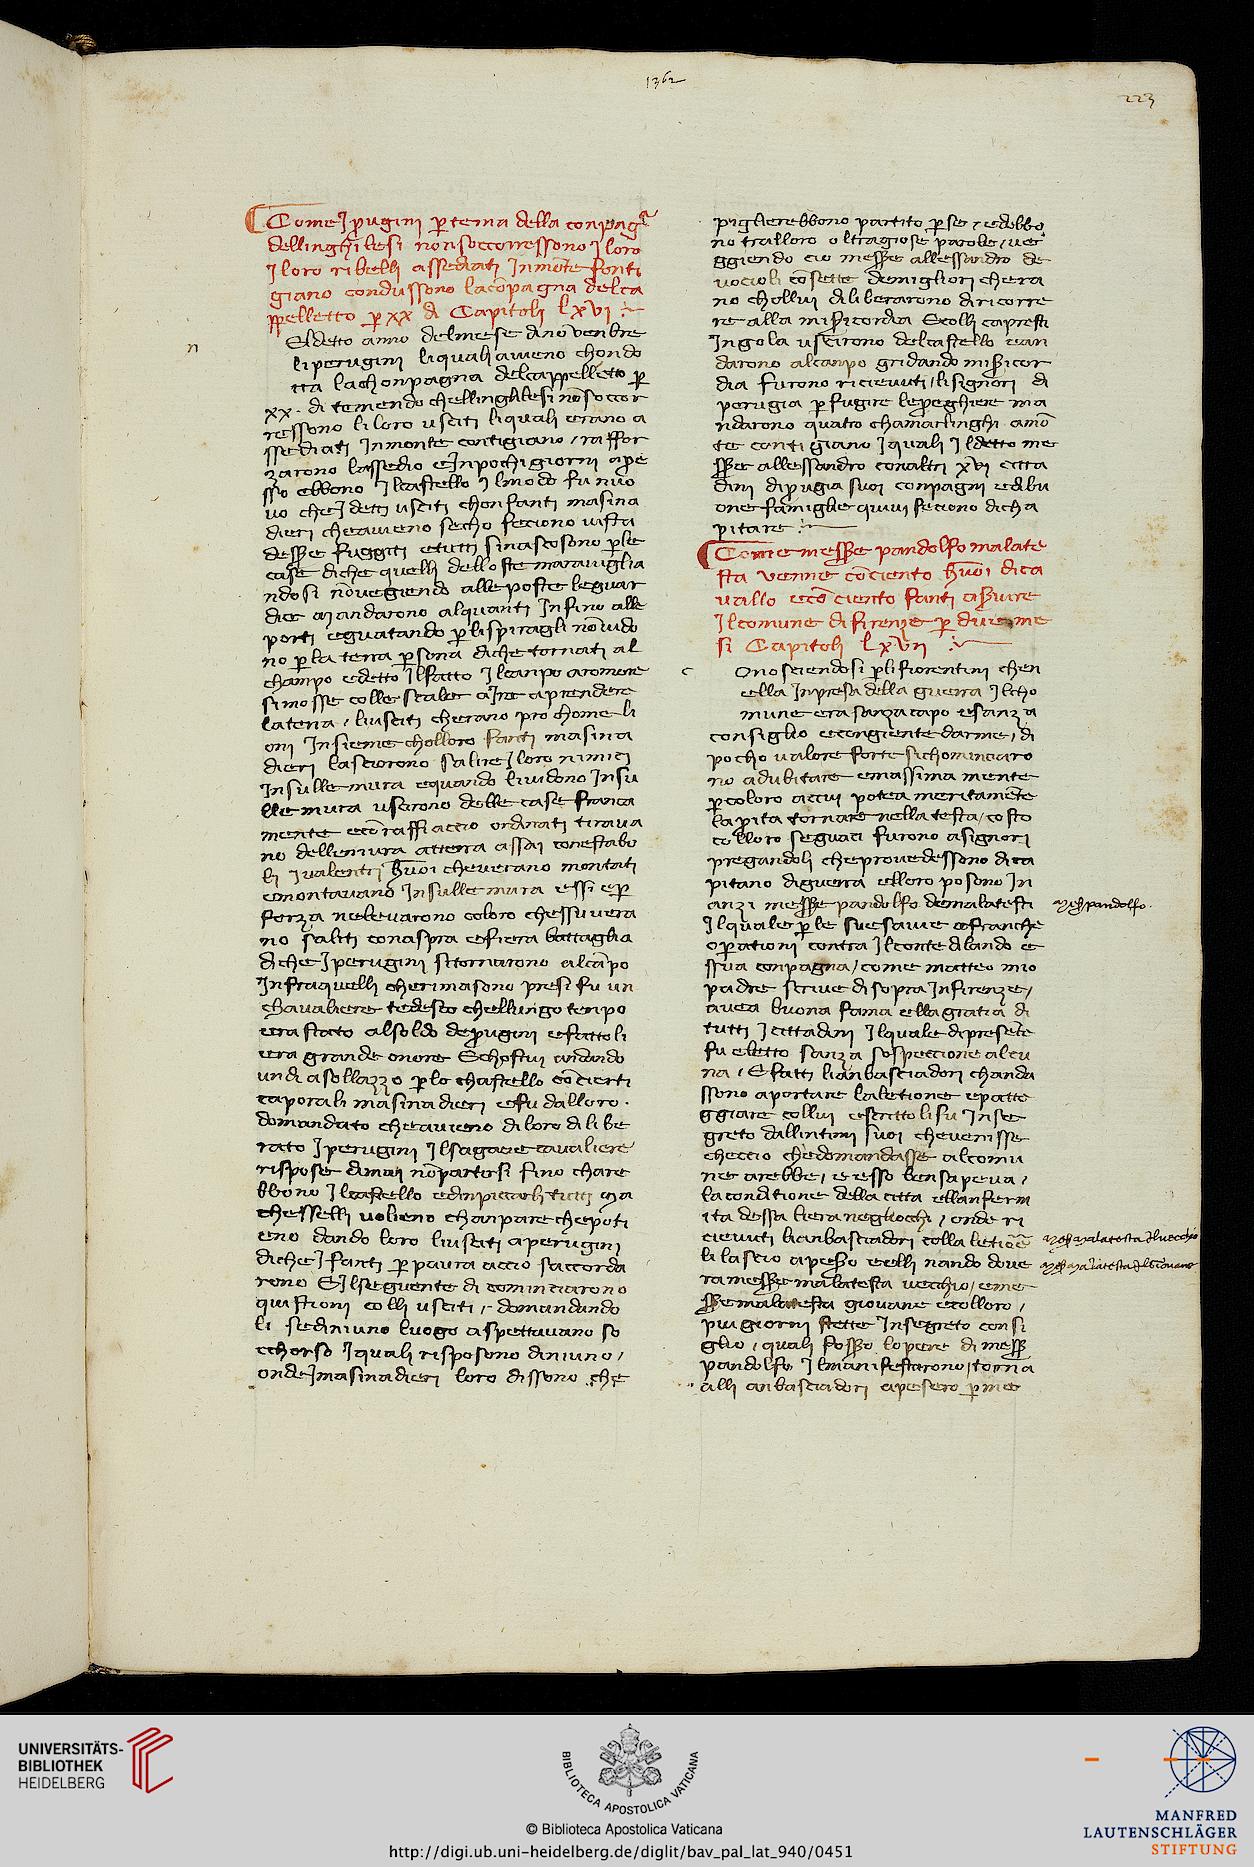 1362
223
Come J perugini p tema della conpagª
dellinghilesi non soccorressono J loro
J loro ribelli assediati Jn monte fonti
giano condussono lacõpagna delca
ppelletto p xx dì Capitoli lxvi
n
El detto anno delmese dinovenbre
li perugini li quali aueno chondo
tta lachonpagna delcappelletto p
xx. dì temendo chellinghilesi nõsoccor
ressono li loro usciti li quali erano a
ssediati Jnmonte contigiano / raffor
zarono lassedio e Jnpochi giorni apre
sso ebbono Jlcastello Jlmodo fu nuo
uo che J detti usciti chon fanti masina
dieri cheaueno secho feciono uista
dessere fuggiti etutti sinascosono ple
case diche quelli delloste marauiglia
ndosi nõuegiendo alleposte leguar
die mandarono alquanti Jnfino alle
porti eguatando plispiragli nõuido
no pla terra psona diche tornati al
champo edetto Jlfatto Jlcanpo aromore
simosse colle scale aJre aprendere
laterra / liusciti cherano prohomeli
oni Jnsieme cholloro fanti masina
dieri lasciorono salire J loro nimici
Jnsullemura equando liuidono Jnsu
llemura uscirono delle case franca
mente ecõ raffi accio ordinati tiraua
no dellemura atterra assai conestabo
li Jualentri huoi cheuerano montati
emontauano Jnsullemura essi ep
forza nelevarono coloro chessuuera
no saliti conaspra efiera battaglia
diche J perugini sitornarono alcãpo
Jnfraquelli cherimasono presi fu un
chaualiere tedesco chellungo tenpo
era stato alsoldo deperugini efattoli
era grande onore Echostui andando
undi asollazzo plo chastello cõcierti
caporali masinadieri efu dalloro
domandato cheaueno diloro dilibe
rato J perugini Jlsagacie caualiere
rispose dimai nõpartirsi fino chare
bbono Jlcastello edinpiccarli tutti ma
chesselli uolieno chanpare chepoti
eno dando loro liusciti aperugini
diche J fanti p paura accio saccorda
rono EJlseguente dì cominciarono
quistioni colli usciti / domandando
li sediniuno luogo aspettauano so
cchorso Jquali risposono diniuno /
onde J masinadieri loro dissono che
piglierebbono partito pse / edebbo
no tralloro oltragiose parole / ue
ggiendo cio messer allessandro de
uocioli cõsette demigliori chera
no chollui diliberarono diricorre
re alla misericordia Ecolli capresti
Jngola uscirono delcastello ean
darono alcanpo gridando misericor
dia furono riceuuti / lisignori di
perugia p fugire lepreghiere ma
ndarono quatro chamarlinghi amõ
te contigiano Jquali Jldetto me
sser allessandro conaltri xvi citta
dini diperugia suoi conpagni edibu
one famiglie quiui feciono dicha
pitare
Come messer pandolfo malate
sta venne cõciento huoi dica
uallo ecõ ciento fanti aseruire
Jlcomune difirenze p duie me
si Capitoli lxvii
c
Onosciendosi plifiorentini chen
ella Jnpresa della guerra Jlcho
mune era sanza capo esanza
consiglio econgiente darme / di
pocho ualore forte sichominciaro
no adubitare emassimamente
pcoloro accui potea meritamẽte
lapita tornare nella testa / costo
colloro seguaci furono asignori
pregandoli cheprouedessono dica
pitano diguerra elloro posono Jn
anzi messer pandolfo demalatesti
Jlquale ple suesauie efranche
operationi contra Jlconte dilando e
ssua conpagna / come matteo mio
padre scriue disopra Jnfirenze /
auea buona fama ella gratia di
tutti J cittadini Jlquale dipresẽte
fu eletto sanza sospeccione alcu
na / Efatti lianbasciadori chanda
ssono aportare laletione epatte
ggiare collui escritto lisu Jnse
greto dallintimi suoi cheuenisse
checcio chedomandasse alcomu
ne arebbe / eresso bensapeua /
laconditione della citta ellanferm
ita dessa liera negliocchi / onde ri
cieuuti lianbasciadori colla letiõe
li lascio apesero eelli nando doue
ra messer malatesta uecchio / eme
sser malatesta giouane ecolloro /
piu giorni stette Jnsegreto consi
glio / quali fossero lopere di messer
pandolfo Jlmanifestarono / torna
alli anbasciadori apesero pme
mess pandolfo.
mess malatesta Jluecchio
mess malatesta Jlgiouane
UNIVERSITÄTS-
BIBLIOTHEK
HEIDELBERG
BIBLIOTECA APOSTOLICA VATICANA
© Biblioteca Apostolica Vaticana
http://digi.ub.uni-heidelberg.de/diglit/bav_pal_lat_940/0451
MANFRED
LAUTENSCHLÄGER
STIFTUNG